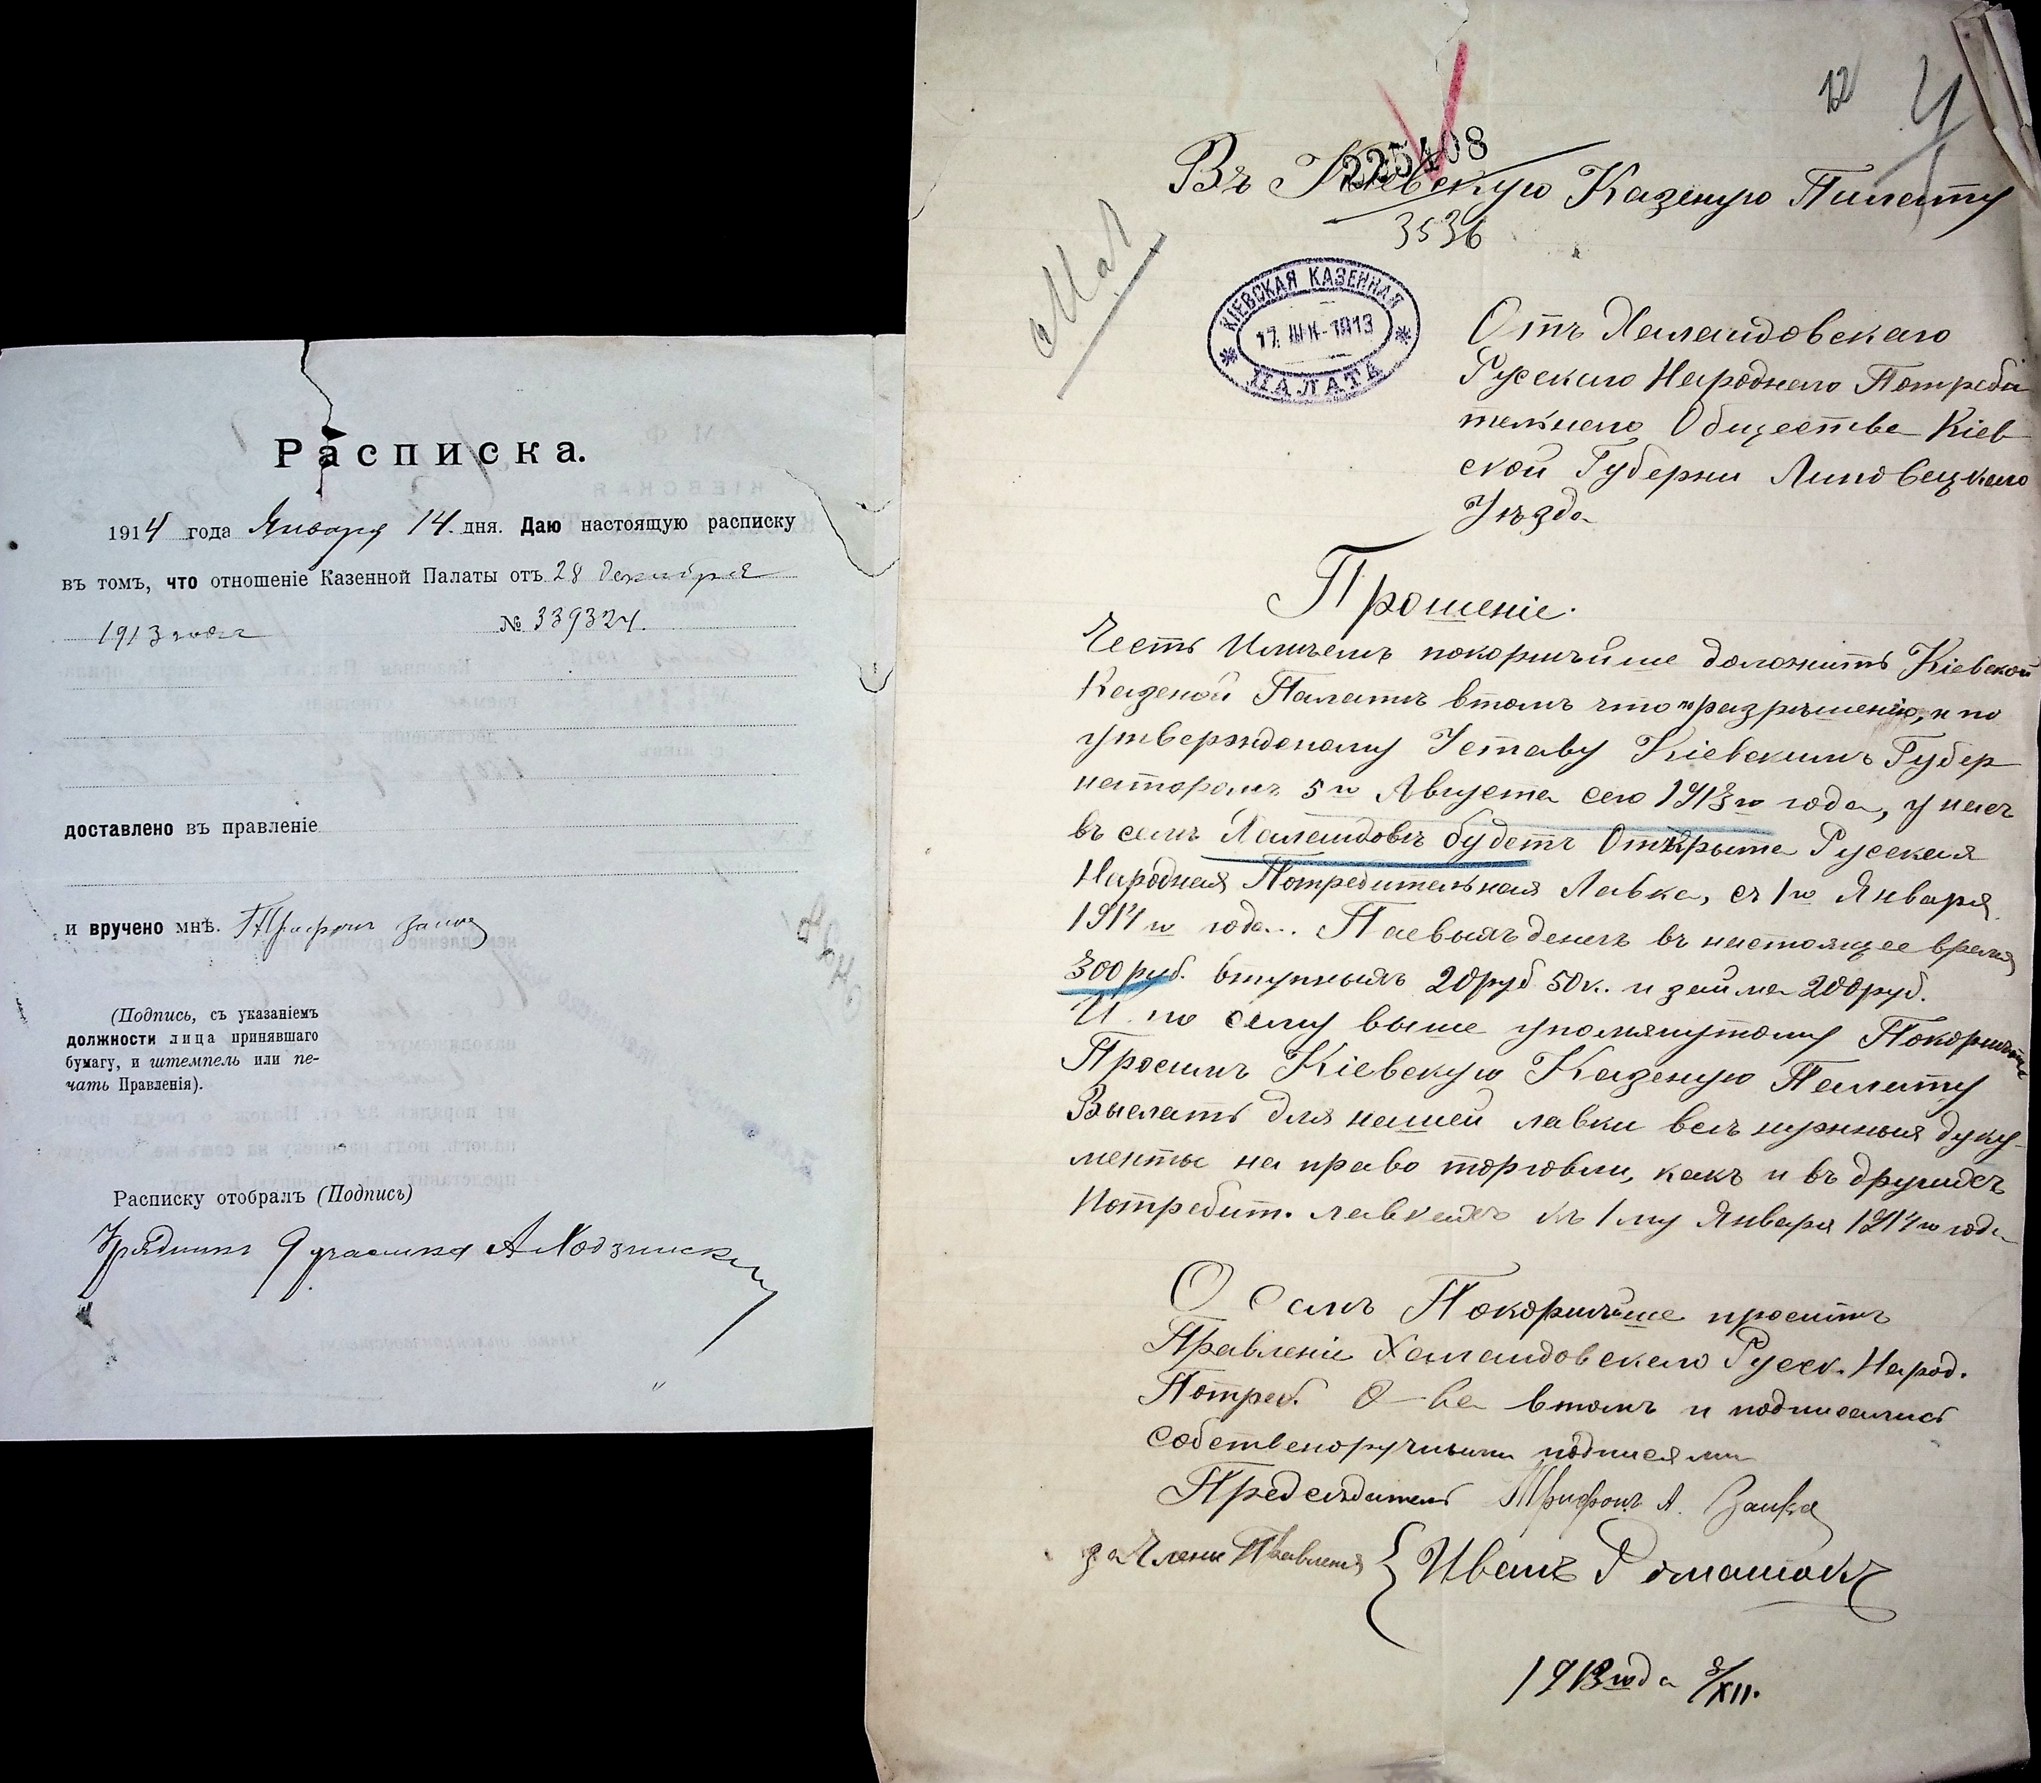 Расписка.
1914 года Января 14. дня. Даю настоящую расписку
въ томъ, что отношеніе Казенной Палаты отъ 28 декабря
1913 года № 339324.
доставлено въ правленіе
и вручено мнѣ. Трифонъ Заика
(Подпись, съ указаніемъ
должности лица принявшаго
бумагу, и штемпель или пе-
чать Правленія).
Расписку отобралъ (Подпись)
Урядникъ 9 участка А
12
225408
Въ Кіевскую Казеную Палату
3536
КІЕВСКАЯ КАЗЕННАЯ
17. 1913
ПАЛАТА
Отъ Халаидовскаго
Русскаго Народнаго Потреби
тельнаго Общества Кіев
ской Губерни Липовецкаго
Уѣзда
Прошеніе.
Честь Имѣемъ покорнѣйше доложить Кіевской
Казеной Палатѣ втомъ что по разрѣшенію, и по
утвержденому Уставу Кіевскимъ Губер
наторомъ 5го Августа сего 1913го года, у насъ
въ селѣ Халаидовѣ будетъ Открыта Русская
Народная Потребительная Лавка, съ 1го Января
1914го года. Паевыхъ денегъ въ настоящее время
300 руб. втупныхъ 20 руб 50 к. и займа 200 руб.
И по сему выше упомянутому Покорнѣйше
Просимъ Кіевскую Казеную Палату
Выслать для нашей лавки всѣ нужныя доку-
менты на право торговли, какъ и въ другихъ
Потребит. лавкахъ къ 1му Января 1914го года
О Семъ Покорнѣйше проситъ
Правленіе Халаидовскаго Русск. Народ.
Потреб. О-ва втомъ и подписались
собственоручными подписями
Председатель Трифонъ А. Заика
за Члены Правленія { Иванъ Ромашокъ
1913 года 8/XII.